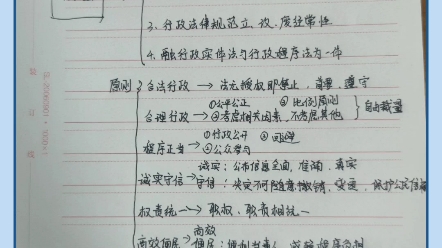 3. 行政法律规范立、改、废经常性
4. 融行政实体法与行政程序法为一体
原则
合法行政 → 法无授权即禁止，首要，遵守
①公平公正 ③比例原则
合理行政 → ②考虑相关因素，不考虑其他 自由裁量
①行政公开 ③回避
程序正当 → ②公众参与
诚实：公布信息全面、准确、真实
诚实守信 → 守信：决定不可随意撤销、变更，保护公民信赖
权责统一 → 职权、职责相统一
高效
高效便民 → 便民：